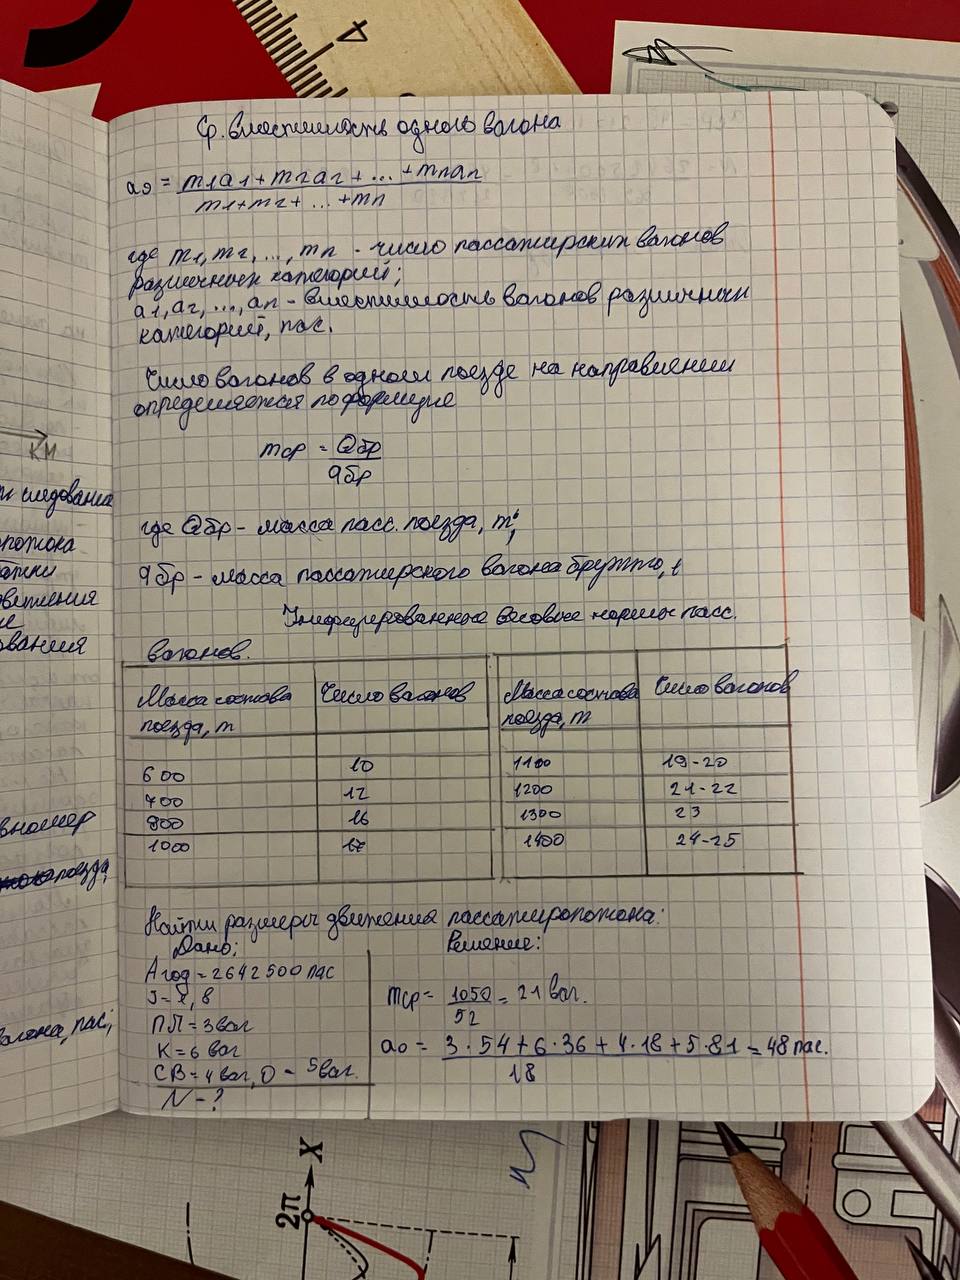 4
Ср. вместимость одного вагона
a₀ = m₁a₁ + m₂a₂ + ... + mₙaₙ
m₁ + m₂ + ... + mₙ
где m₁, m₂, ..., mₙ - число пассажирских вагонов
различных категорий;
a₁, a₂, ..., aₙ - вместимость вагонов различных
категорий, пас.
Число вагонов в одном поезде на направлении
определяется по формуле
mср = Qбр
qбр
КМ
следования
где Qбр - масса пасс. поезда, т;
qбр - масса пассажирского вагона брутто, t
Унифицированные весовые нормы пасс.
вагонов.
Масса состава
поезда, т
Число вагонов
Масса состава
поезда, т
Число вагонов
600 10 1100 19-20
700 12 1200 21-22
900 16 1300 23
1000 17 1400 24-25
поезда,
вагона, пас;
Найти размеры движения пассажиропотока:
Дано:
Aгод = 2642500 пас
ПЛ = 3 ваг
К = 6 ваг
СВ = 4 ваг, О - 5 ваг.
N - ?
Решение:
mср = 1050 = 21 ваг.
52
a₀ = 3 · 54 + 6 · 36 + 4 · 18 + 5 · 81 = 48 пас.
18
X
2π